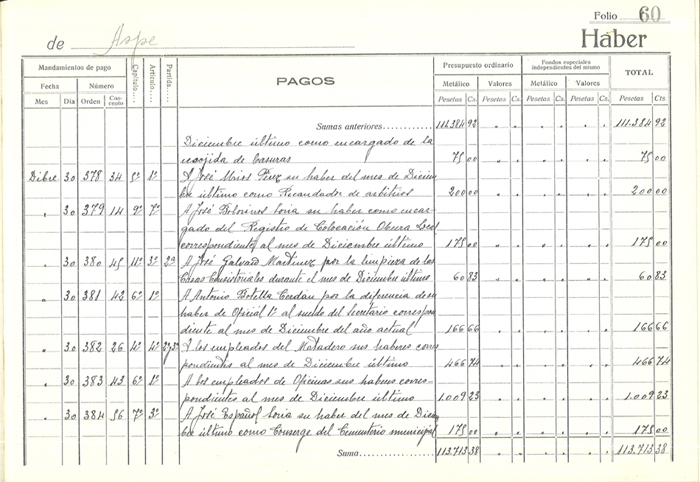 Folio 60
de Aspe Haber
Mandamientos de pago Capítulo.... Artículo.... Partida.... PAGOS Presupuesto ordinario Fondos especiales independientes del mismo TOTAL
Fecha Número Metálico Valores Metálico Valores
Mes Día Orden Concepto Pesetas Cs. Pesetas Cs. Pesetas Cs. Pesetas Cs. Pesetas Cts
Sumas anteriores 111.384 92 111.384 92
Diciembre último como encargado de la
recojida de basuras 75 00 75 00
Dibre 30 378 34 5º 1º A José Mires Pérez su haber del mes de Diciem
bre último como Recaudador de arbitrios 200 00 200 00
" 30 379 14 9º 7º A José Bolorinos Soria su haber como encar
gado del Registro de Colocación Obrera Local
correspondiente al mes de Diciembre último 175 00 175 00
" 30 380 45 11º 3º 2ª A José Galvañ Martinez por la limpieza de las
Casas Consistoriales durante el mes de Diciembre último 60 83 60 83
" 30 381 42 6º 1º A Antonio Botella Cerdan por la diferencia de su
haber de Oficial 1º al sueldo del Secretario correspon
diente al mes de Diciembre del año actual 166 66 166 66
" 30 382 26 4º 4º A los empleados del Matadero sus haberes corres
pondientes al mes de Diciembre último 466 74 466 74
" 30 383 43 6º 1º A los empleados de Oficinas sus haberes corres-
pondiente al mes de Diciembre último 1.009 23 1.009 23
" 30 384 56 7º 3º A José Español Soria su haber del mes de Diciem
bre último como Conserge del Cementerio municipal 175 00 175 00
Suma 113.713 38 113.713 38